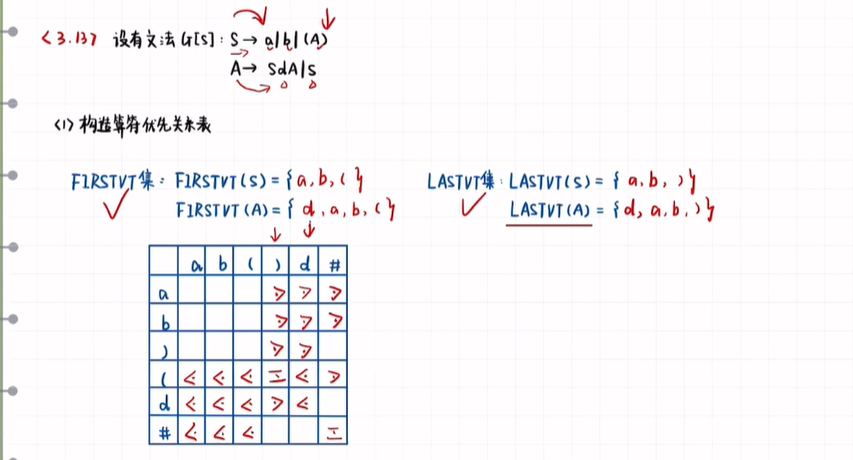 <3.13> 设有文法G[S]: S→a|b|(A)
A→SdA|S
<1>构造算符优先关系表
FIRSTVT集: FIRSTVT(S)={a,b,(}
FIRSTVT(A)={d,a,b,(}
LASTVT集: LASTVT(S)={a,b,)}
LASTVT(A)={d,a,b,)}
a b ( ) d #
a ⋗ ⋗ ⋗
b ⋗ ⋗ ⋗
) ⋗ ⋗
( ⋖ ⋖ ⋖ ≐ ⋖ ⋗
d ⋖ ⋖ ⋖ ⋗ ⋖
# ⋖ ⋖ ⋖ ≐